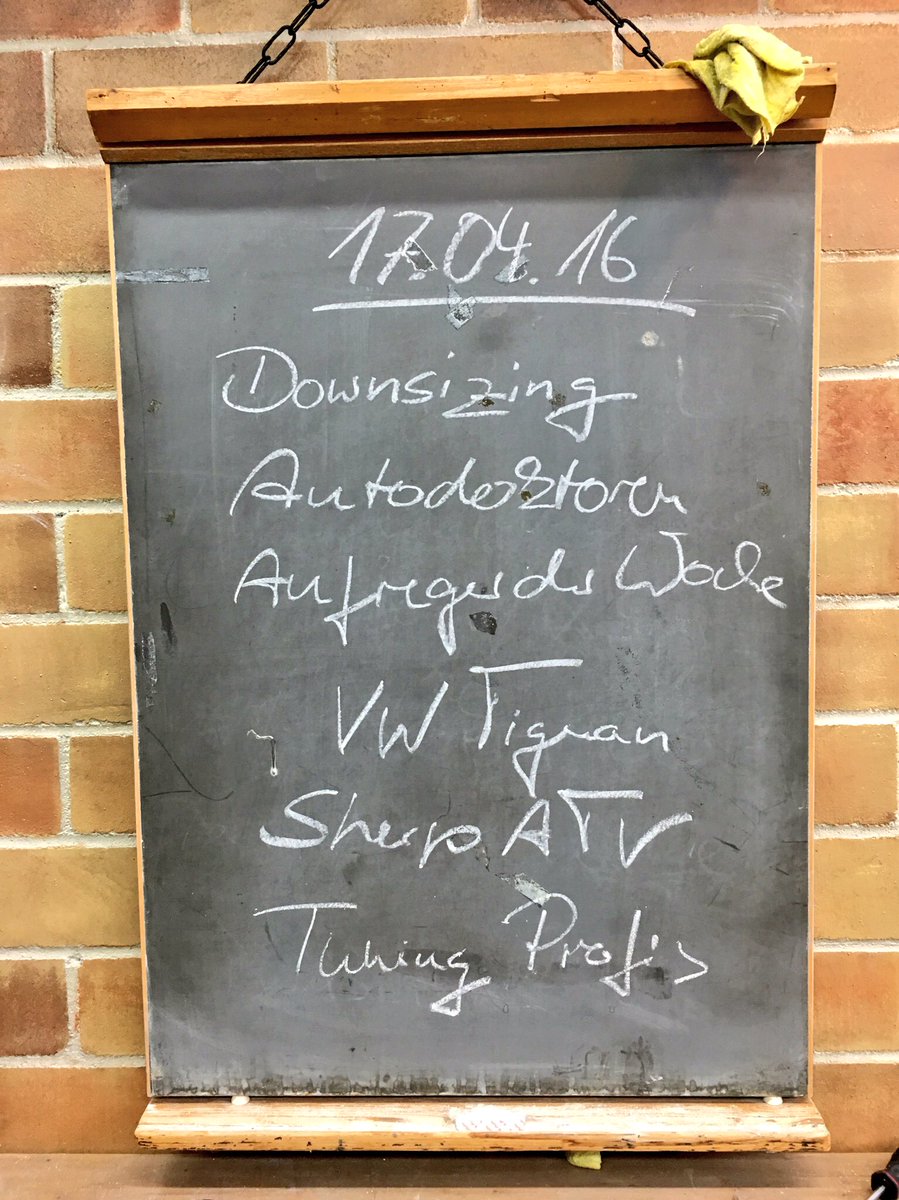 17.04.16
Downsizing
Autodoktoren
Aufreger der Woche
VW Tiguan
Sherp ATV
Tuning Profis